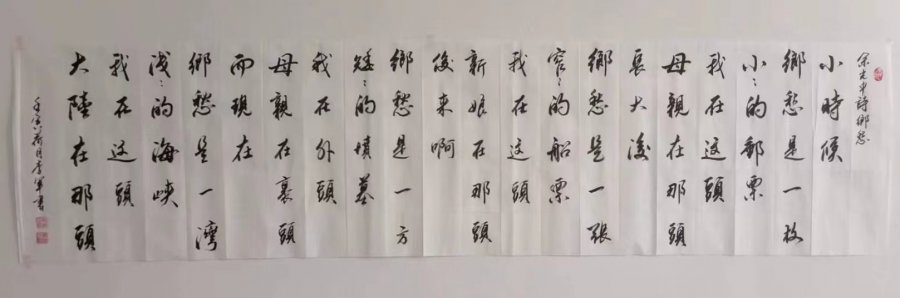 余光中詩鄉愁
小時候
鄉愁是一枚
小小的郵票
我在这頭
母親在那頭
長大後
鄉愁是一張
窄窄的船票
我在這頭
新娘在那頭
後来啊
鄉愁是一方
矮矮的墳墓
我在外頭
母親在裏頭
而現在
鄉愁是一灣
浅浅的海峡
我在这頭
大陸在那頭
壬寅
月李軍書